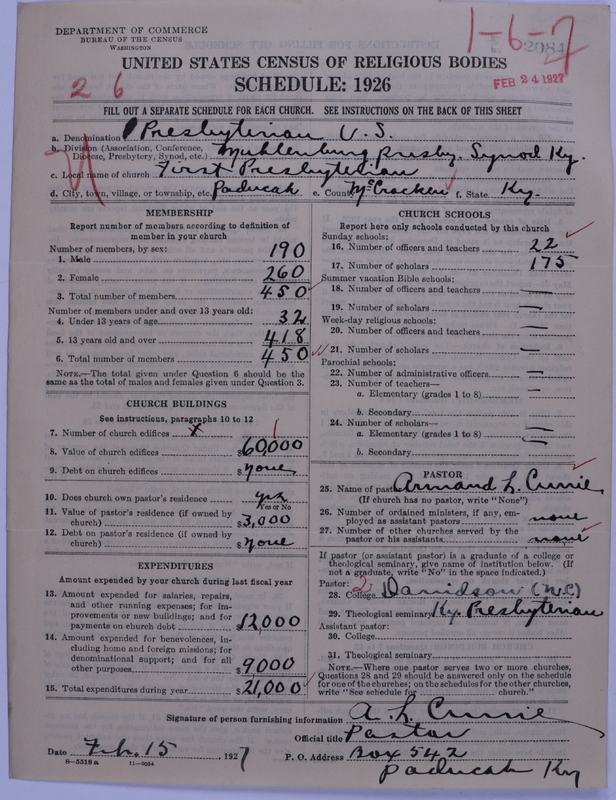 DEPARTMENT OF COMMERCE
BUREAU OF THE CENSUS
WASHINGTON
1-6-7
2084
FEB 24 1927
2 6
UNITED STATES CENSUS OF RELIGIOUS BODIES
SCHEDULE: 1926
FILL OUT A SEPARATE SCHEDULE FOR EACH CHURCH. SEE INSTRUCTIONS ON THE BACK OF THIS SHEET
a. Denomination Presbyterian U.S.
b. Division (Association, Conference, Diocese, Presbytery, Synod, etc.) Muhlenburg Presby. Synod Ky.
c. Local name of church First Presbyterian
d. City, town, village, or township, etc. Paducah e. County McCracken f. State Ky.
MEMBERSHIP
Report number of members according to definition of
member in your church
Number of members, by sex:
1. Male 190
2. Female 260
3. Total number of members 450
Number of members under and over 13 years old:
4. Under 13 years of age 32
5. 13 years old and over 418
6. Total number of members 450
NOTE.—The total given under Question 6 should be the
same as the total of males and females given under Question 3.
CHURCH BUILDINGS
See instructions, paragraphs 10 to 12
7. Number of church edifices 1
8. Value of church edifices $60,000
9. Debt on church edifices $none
10. Does church own pastor's residence yes
Yes or No
11. Value of pastor's residence (if owned by
church) $3,000
12. Debt on pastor's residence (if owned by
church) $none
EXPENDITURES
Amount expended by your church during last fiscal year
13. Amount expended for salaries, repairs,
and other running expenses; for im-
provements or new buildings; and for
payments on church debt $12,000
14. Amount expended for benevolences, in-
cluding home and foreign missions; for
denominational support; and for all
other purposes $9,000
15. Total expenditures during year $21,000
CHURCH SCHOOLS
Report here only schools conducted by this church
Sunday schools:
16. Number of officers and teachers 22
17. Number of scholars 175
Summer vacation Bible schools:
18. Number of officers and teachers —
19. Number of scholars —
Week-day religious schools:
20. Number of officers and teachers —
21. Number of scholars —
Parochial schools:
22. Number of administrative officers —
23. Number of teachers—
a. Elementary (grades 1 to 8) —
b. Secondary
24. Number of scholars—
a. Elementary (grades 1 to 8) —
b. Secondary
PASTOR
25. Name of pastor Armand L. Currie
(If church has no pastor, write "None")
26. Number of ordained ministers, if any, em-
ployed as assistant pastors none
27. Number of other churches served by the
pastor or his assistants none
If pastor (or assistant pastor) is a graduate of a college or
theological seminary, give name of institution below. (If
not a graduate, write "No" in the space indicated.)
Pastor: 2
28. College Davidson (N.C)
29. Theological seminary Ky. Presbyterian
Assistant pastor:
30. College
31. Theological seminary
NOTE.—Where one pastor serves two or more churches,
Questions 28 and 29 should be answered only on the schedule
for one of the churches; on the schedules for the other churches,
write "See schedule for church."
Signature of person furnishing information A. L. Currie
Official title Pastor
Date Feb. 15, 1927 P. O. Address Box 542
Paducah Ky
8—5518a 11—9034